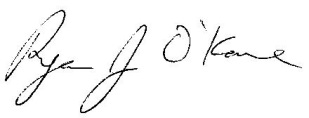 Ryan J O'Kane